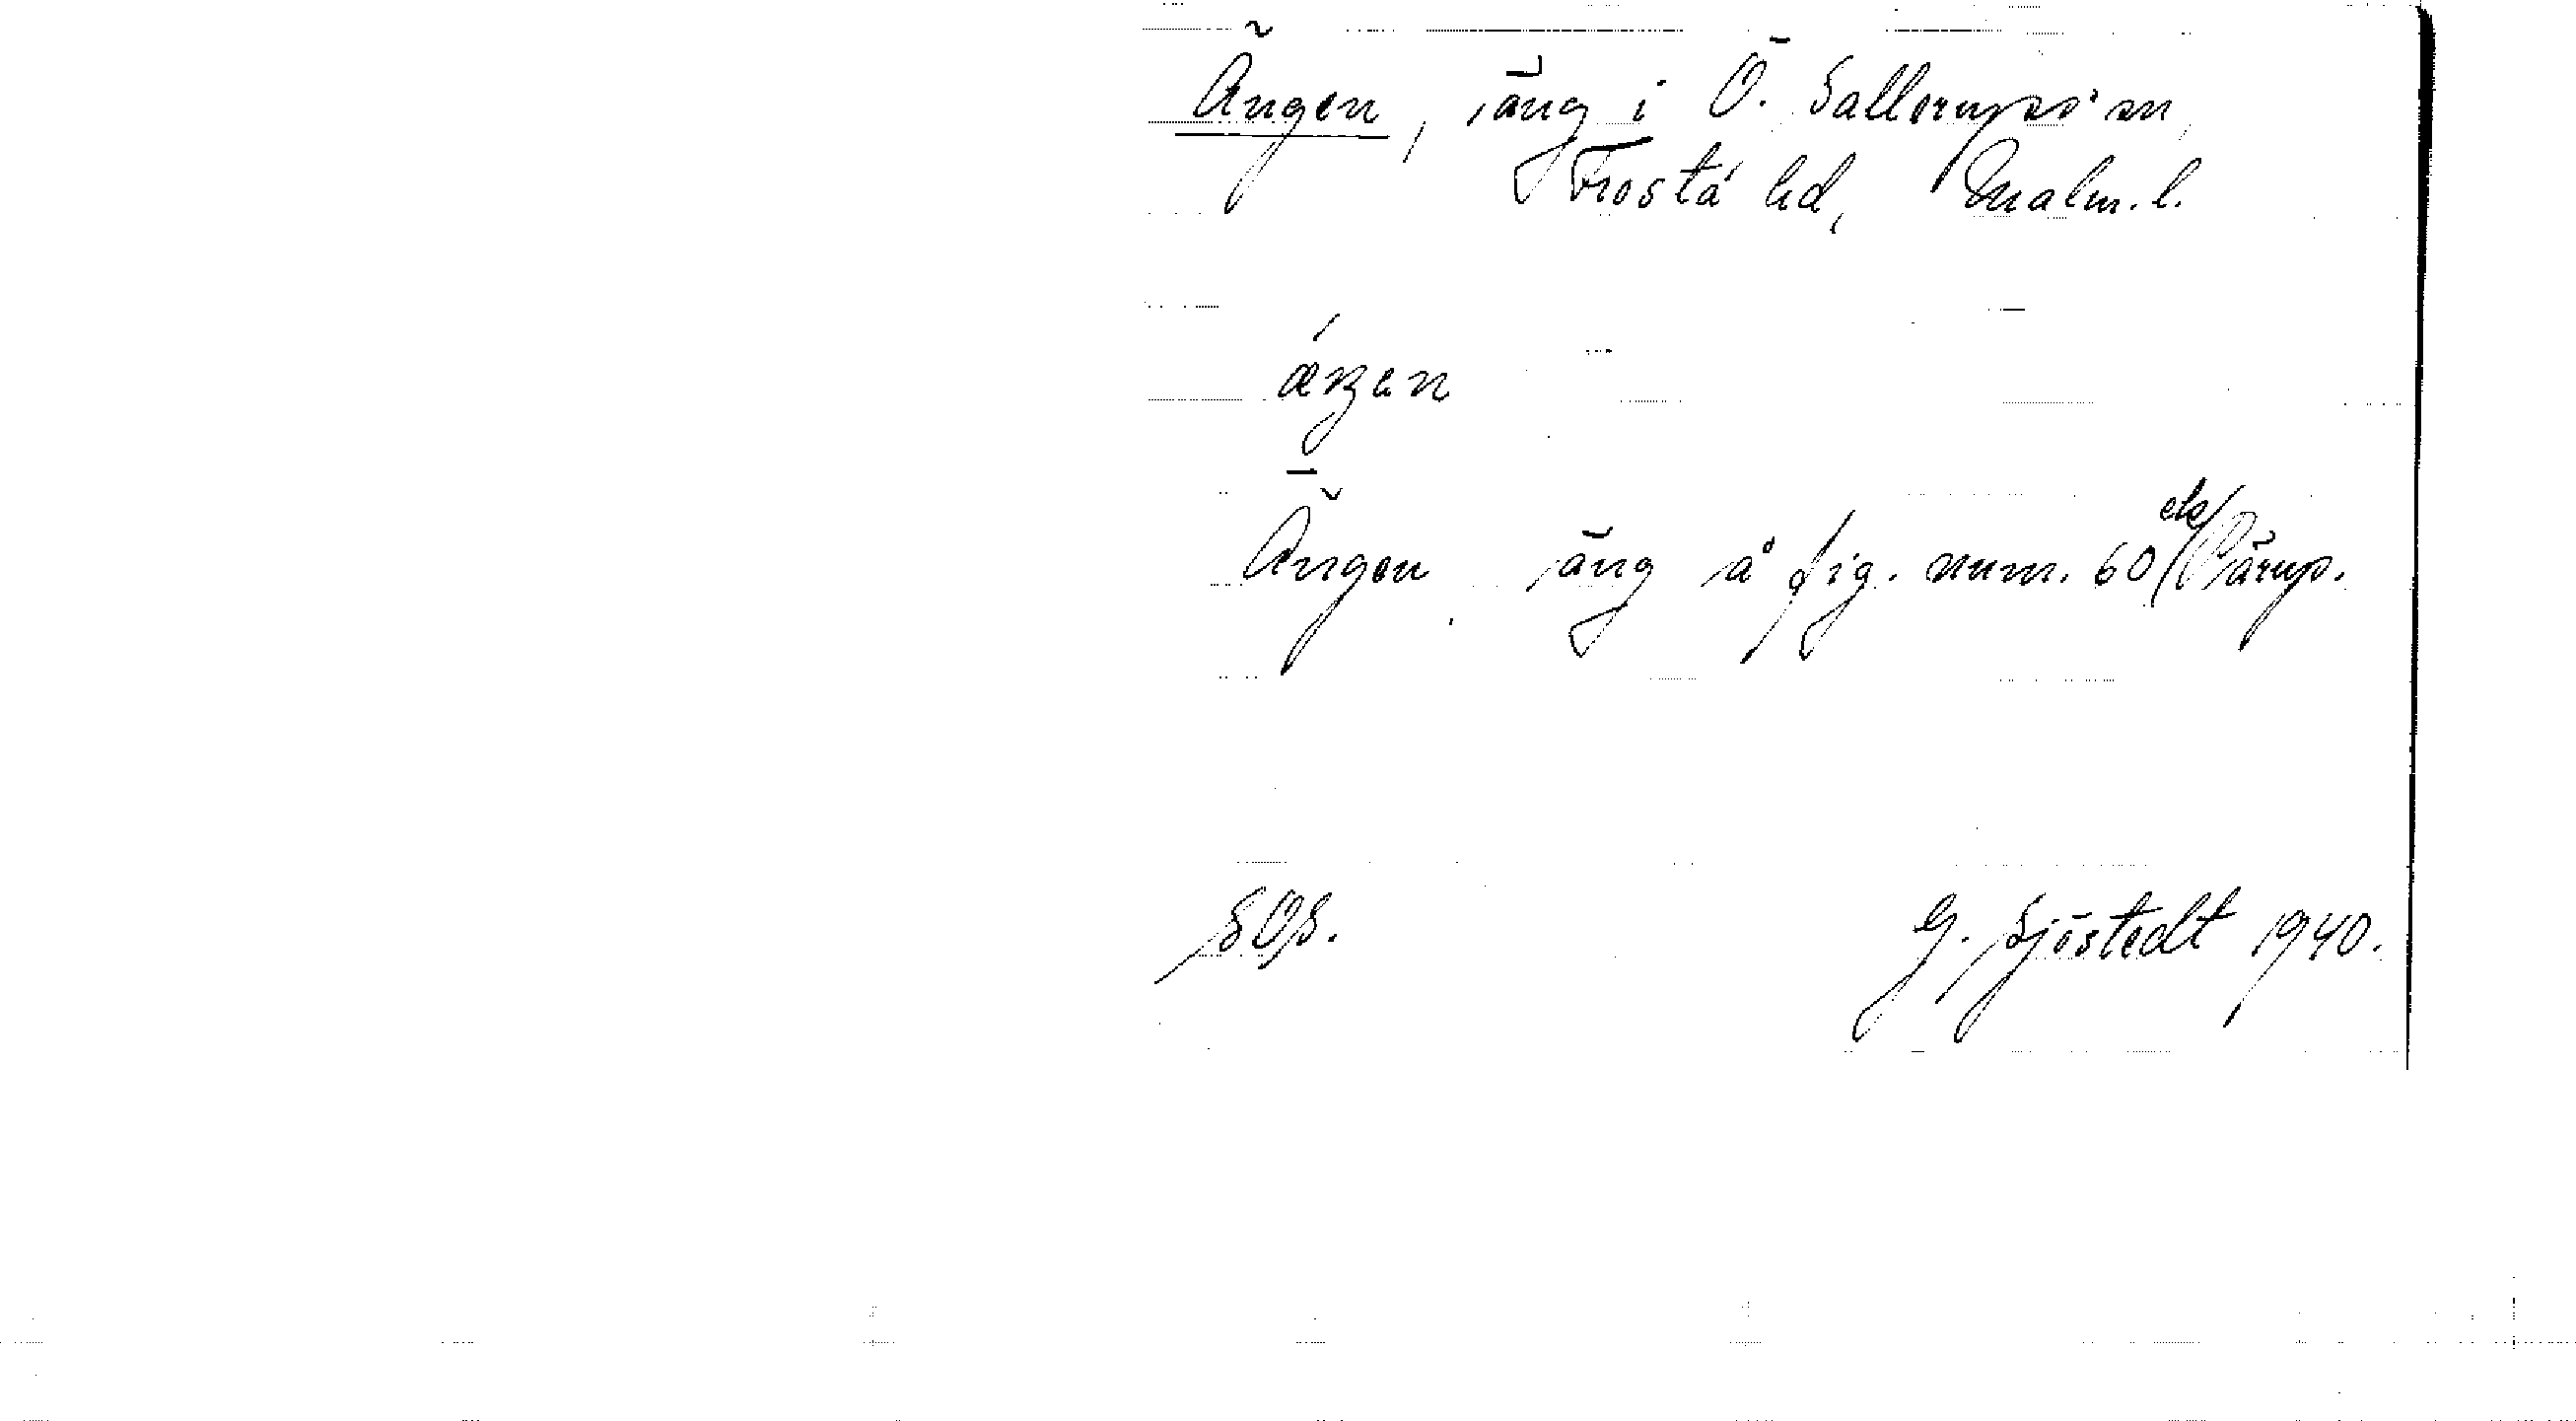 Ängen, äng i Ö. Sallerups sn,
Frosta hd, Malm. l.
Ängen, äng å fig. num. 60 Pärup.
SOS. G. Sjöstedt 1940.